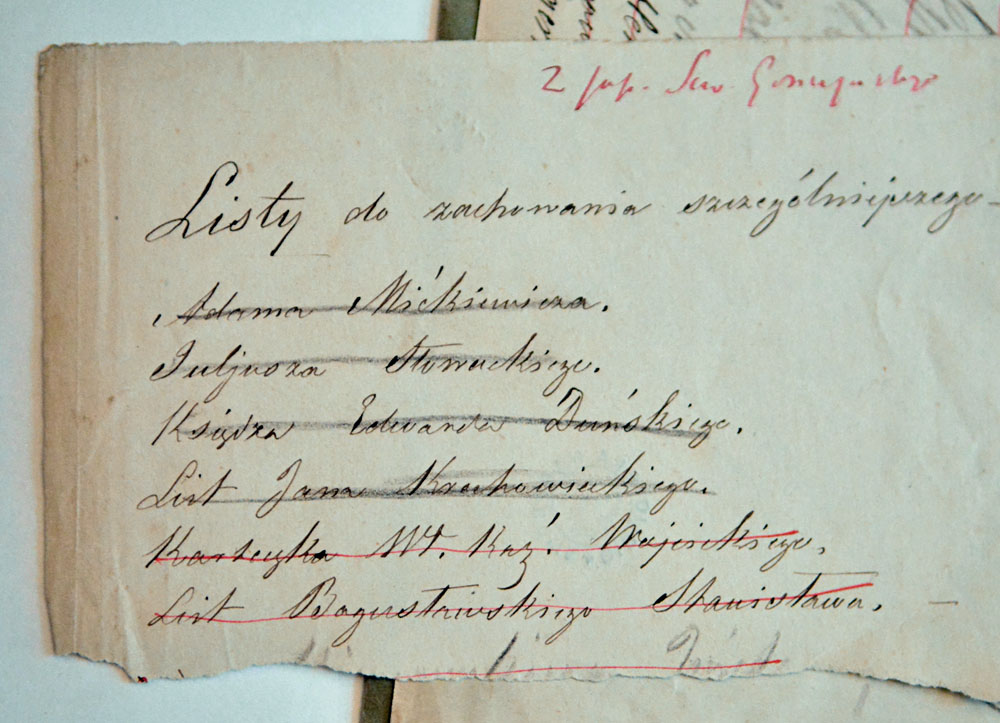 2 pap. Sew. Goszczyńskiego
Listy do zachowania szczególniejszego
Adama Mićkiewicza.
Juljusza Słowackiego.
Księdza Edwarda Duńskiego.
List Jana Krechowieckiego.
Karteczka Wł. Kaź. Wójcickiego.
List Bogusławskiego Stanisława. —